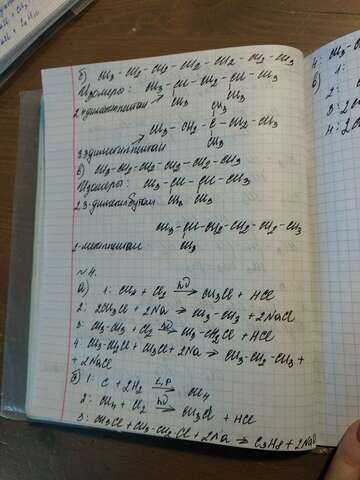 б) CH3-CH2-CH2-CH2-CH2-CH2-CH3
Изомеры: CH3-CH-CH2-CH-CH3
2,4 диметилпентан → CH3 CH3
CH3
CH3-CH2-C-CH2-CH3
CH3
3,3 диметилпентан
в) CH3-CH2-CH2-CH2-CH2-CH3
Изомеры: CH3-CH-CH-CH3
2,3-диметилбутан CH3 CH3
CH3-CH-CH2-CH2-CH2-CH3
2-метилгексан CH3
№4.
а) 1: CH4 + Cl2 hν→ CH3Cl + HCl
2: 2CH3Cl + 2Na → CH3-CH3 + 2NaCl
3: CH3-CH3 + Cl2 hν→ CH3-CH2Cl + HCl
4: CH3-CH2Cl + CH3Cl + 2Na → CH3-CH2-CH3 +
+ 2NaCl
б) 1: C + 2H2 t,p→ CH4
2: CH4 + Cl2 hν→ CH3Cl + HCl
3: CH3Cl + CH3-CH2-Cl + 2Na → C3H8 + 2NaCl
4: CH3
б) 1:
2:
3: 2
4: 2